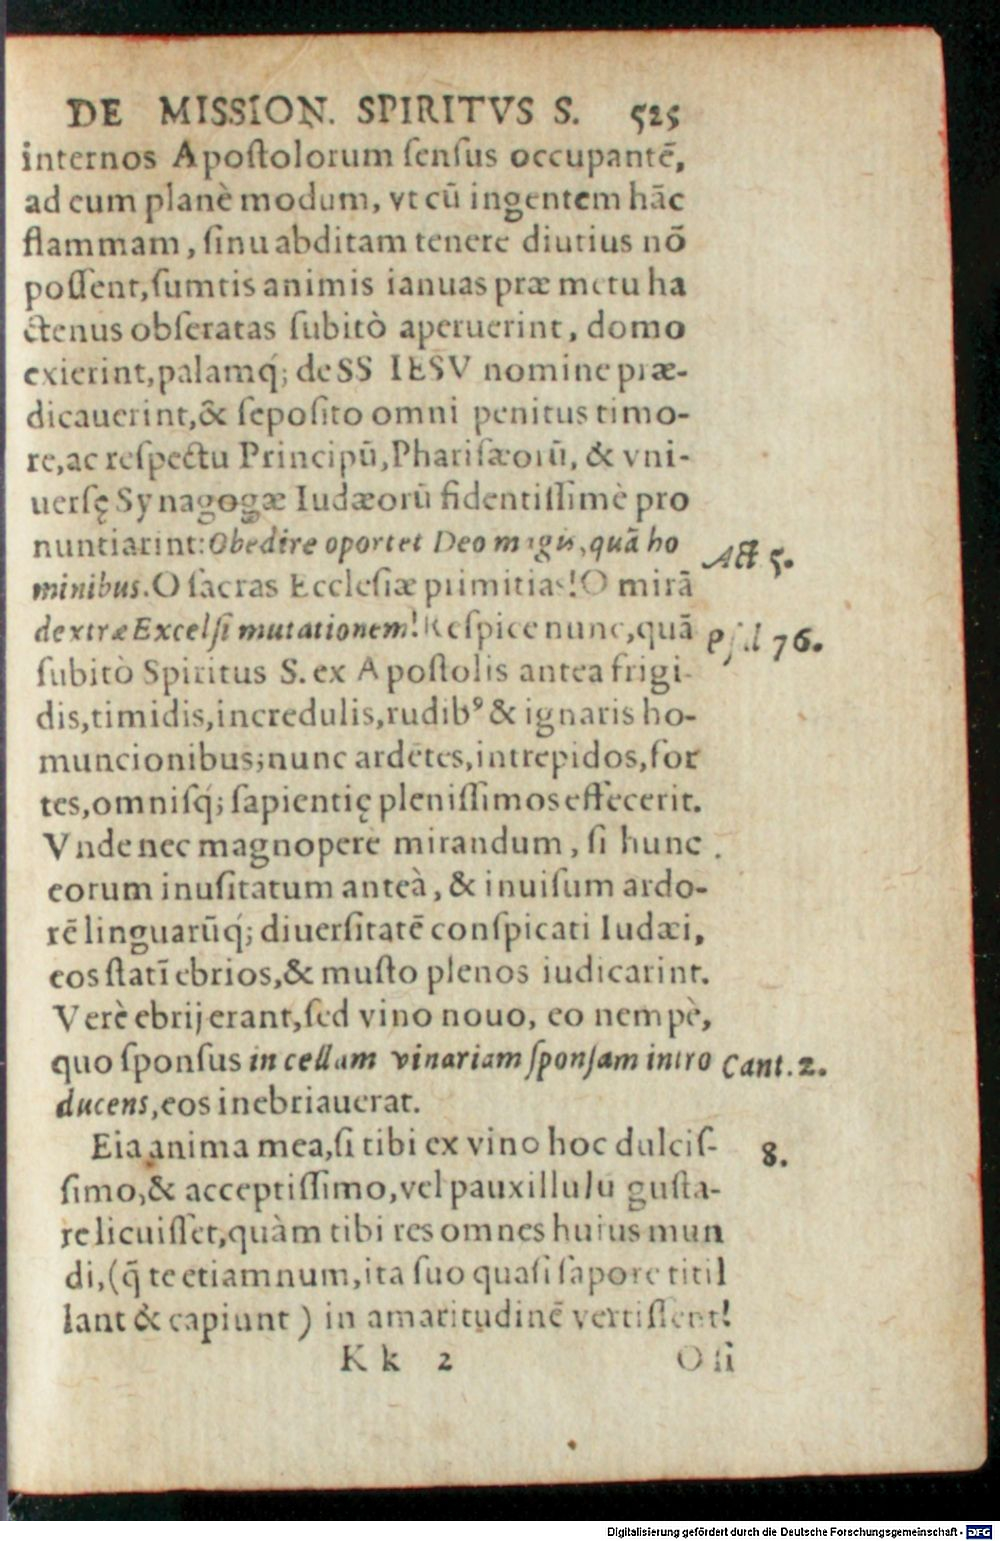 DE MISSION. SPIRITVS S. 525
internos Apostolorum sensus occupantẽ,
ad eum planè modum, vt cũ ingentem hãc
flammam, sinu abditam tenere diutius nõ
possent, sumtis animis ianuas præ metu ha
ctenus obseratas subitò aperuerint, domo
exierint, palamq́; de SS IESV nomine præ-
dicauerint, & seposito omni penitus timo-
re, ac respectu Principũ, Pharisæorũ, & vni-
uersę Synagogæ Iudæorũ fidentissimè pro
nuntiarint: Obedire oportet Deo magis, quã ho
minibus. O sacras Ecclesiæ primitias! O mirã
Act 5.
dextræ Excelsi mutationem! Respice nunc, quã
Psal 76.
subitò Spiritus S. ex Apostolis antea frigi-
dis, timidis, incredulis, rudibꝰ & ignaris ho-
muncionibus; nunc ardẽtes, intrepidos, for
tes, omnisq́; sapientię plenissimos effecerit.
Vnde nec magnopere mirandum, si hunc
eorum inusitatum anteà, & inuisum ardo-
rẽ linguarũq́; diuersitatẽ conspicati Iudæi,
eos statĩ ebrios, & musto plenos iudicarint.
Verè ebrij erant, sed vino nouo, eo nempè,
quo sponsus in cellam vinariam sponsam intro
Cant. 2.
ducens, eos inebriauerat.
Eia anima mea, si tibi ex vino hoc dulcis-
8.
simo, & acceptissimo, vel pauxillulũ gusta-
re licuisset, quàm tibi res omnes huius mun
di, (q̃ te etiamnum, ita suo quasi sapore titil
lant & capiunt) in amaritudinẽ vertissent!
Kk 2 O si
Digitalisierung gefördert durch die Deutsche Forschungsgemeinschaft - DFG